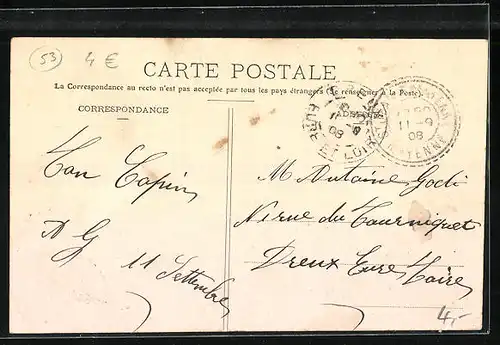 53
4 €
CARTE POSTALE
La Correspondance au recto n'est pas acceptée par tous les pays étrangers (Se renseigner à la Poste)
CORRESPONDANCE
ADRESSE
EURE ET LOIR
08
11 - 9
08
MAYENNE
Ton Copin
A G
11 Settembre
M Antoine Godi
rue du Tourniquet
Dreux Eure & Loire
4,-